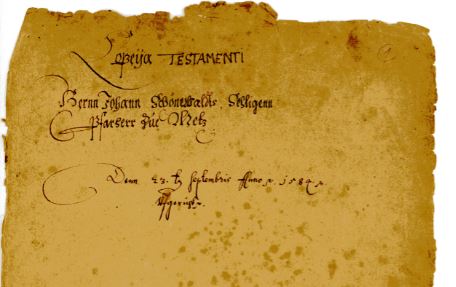 Copeija TESTAMENTI
Hernn Johann Schönewaldts Seligenn
Pfarherr zue Metz
Denn 23 septembris Anno 1584